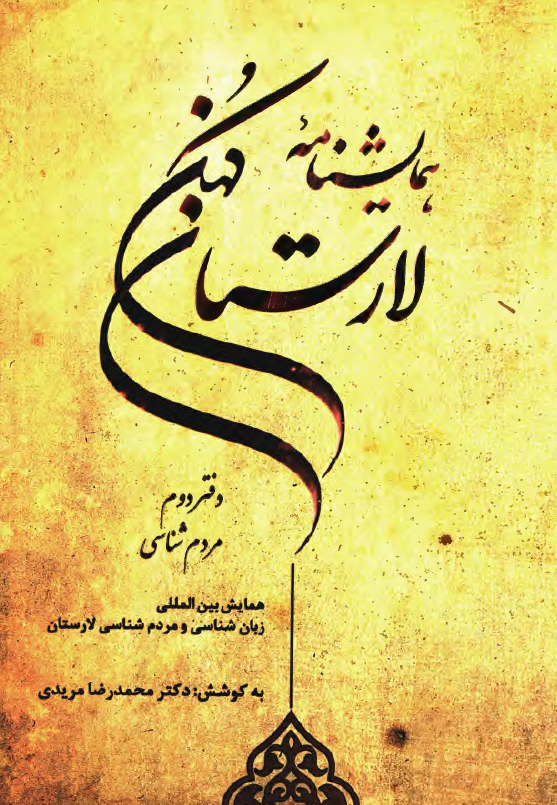 همایشنامهٔ
لارستان کهن
دفتر دوم
مردم شناسی
همایش بین المللی
زبان شناسی و مردم شناسی لارستان
به کوشش: دکتر محمدرضا مریدی